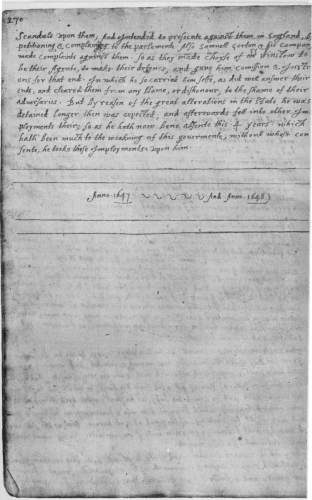 270
Scandals upon them, And Intended to presente against them in England, by
petitioning & complaning to the parlemente. Also Samuel Gorton & his company
made complaints against them. So as they made choyse of Mr Winslow to
be their Agente, to make their defence, and gave him comission & Instructi
ons for that end. In which he so carried him selfe, as did well answer their
ends, and cleared them from any blame, or dishonour, to the shame of their
adversaries. But by reason of the great alterations in the State, he was
detained longer then was expected; and afterwards fell into other Im
ployments their; so as he hath now bene absente this .4. years. which
hath been much to the weakning of this govermente, without whose con
sente, he tooke these Imployments upon him.
Anno. 1647. And Anno. 1648.